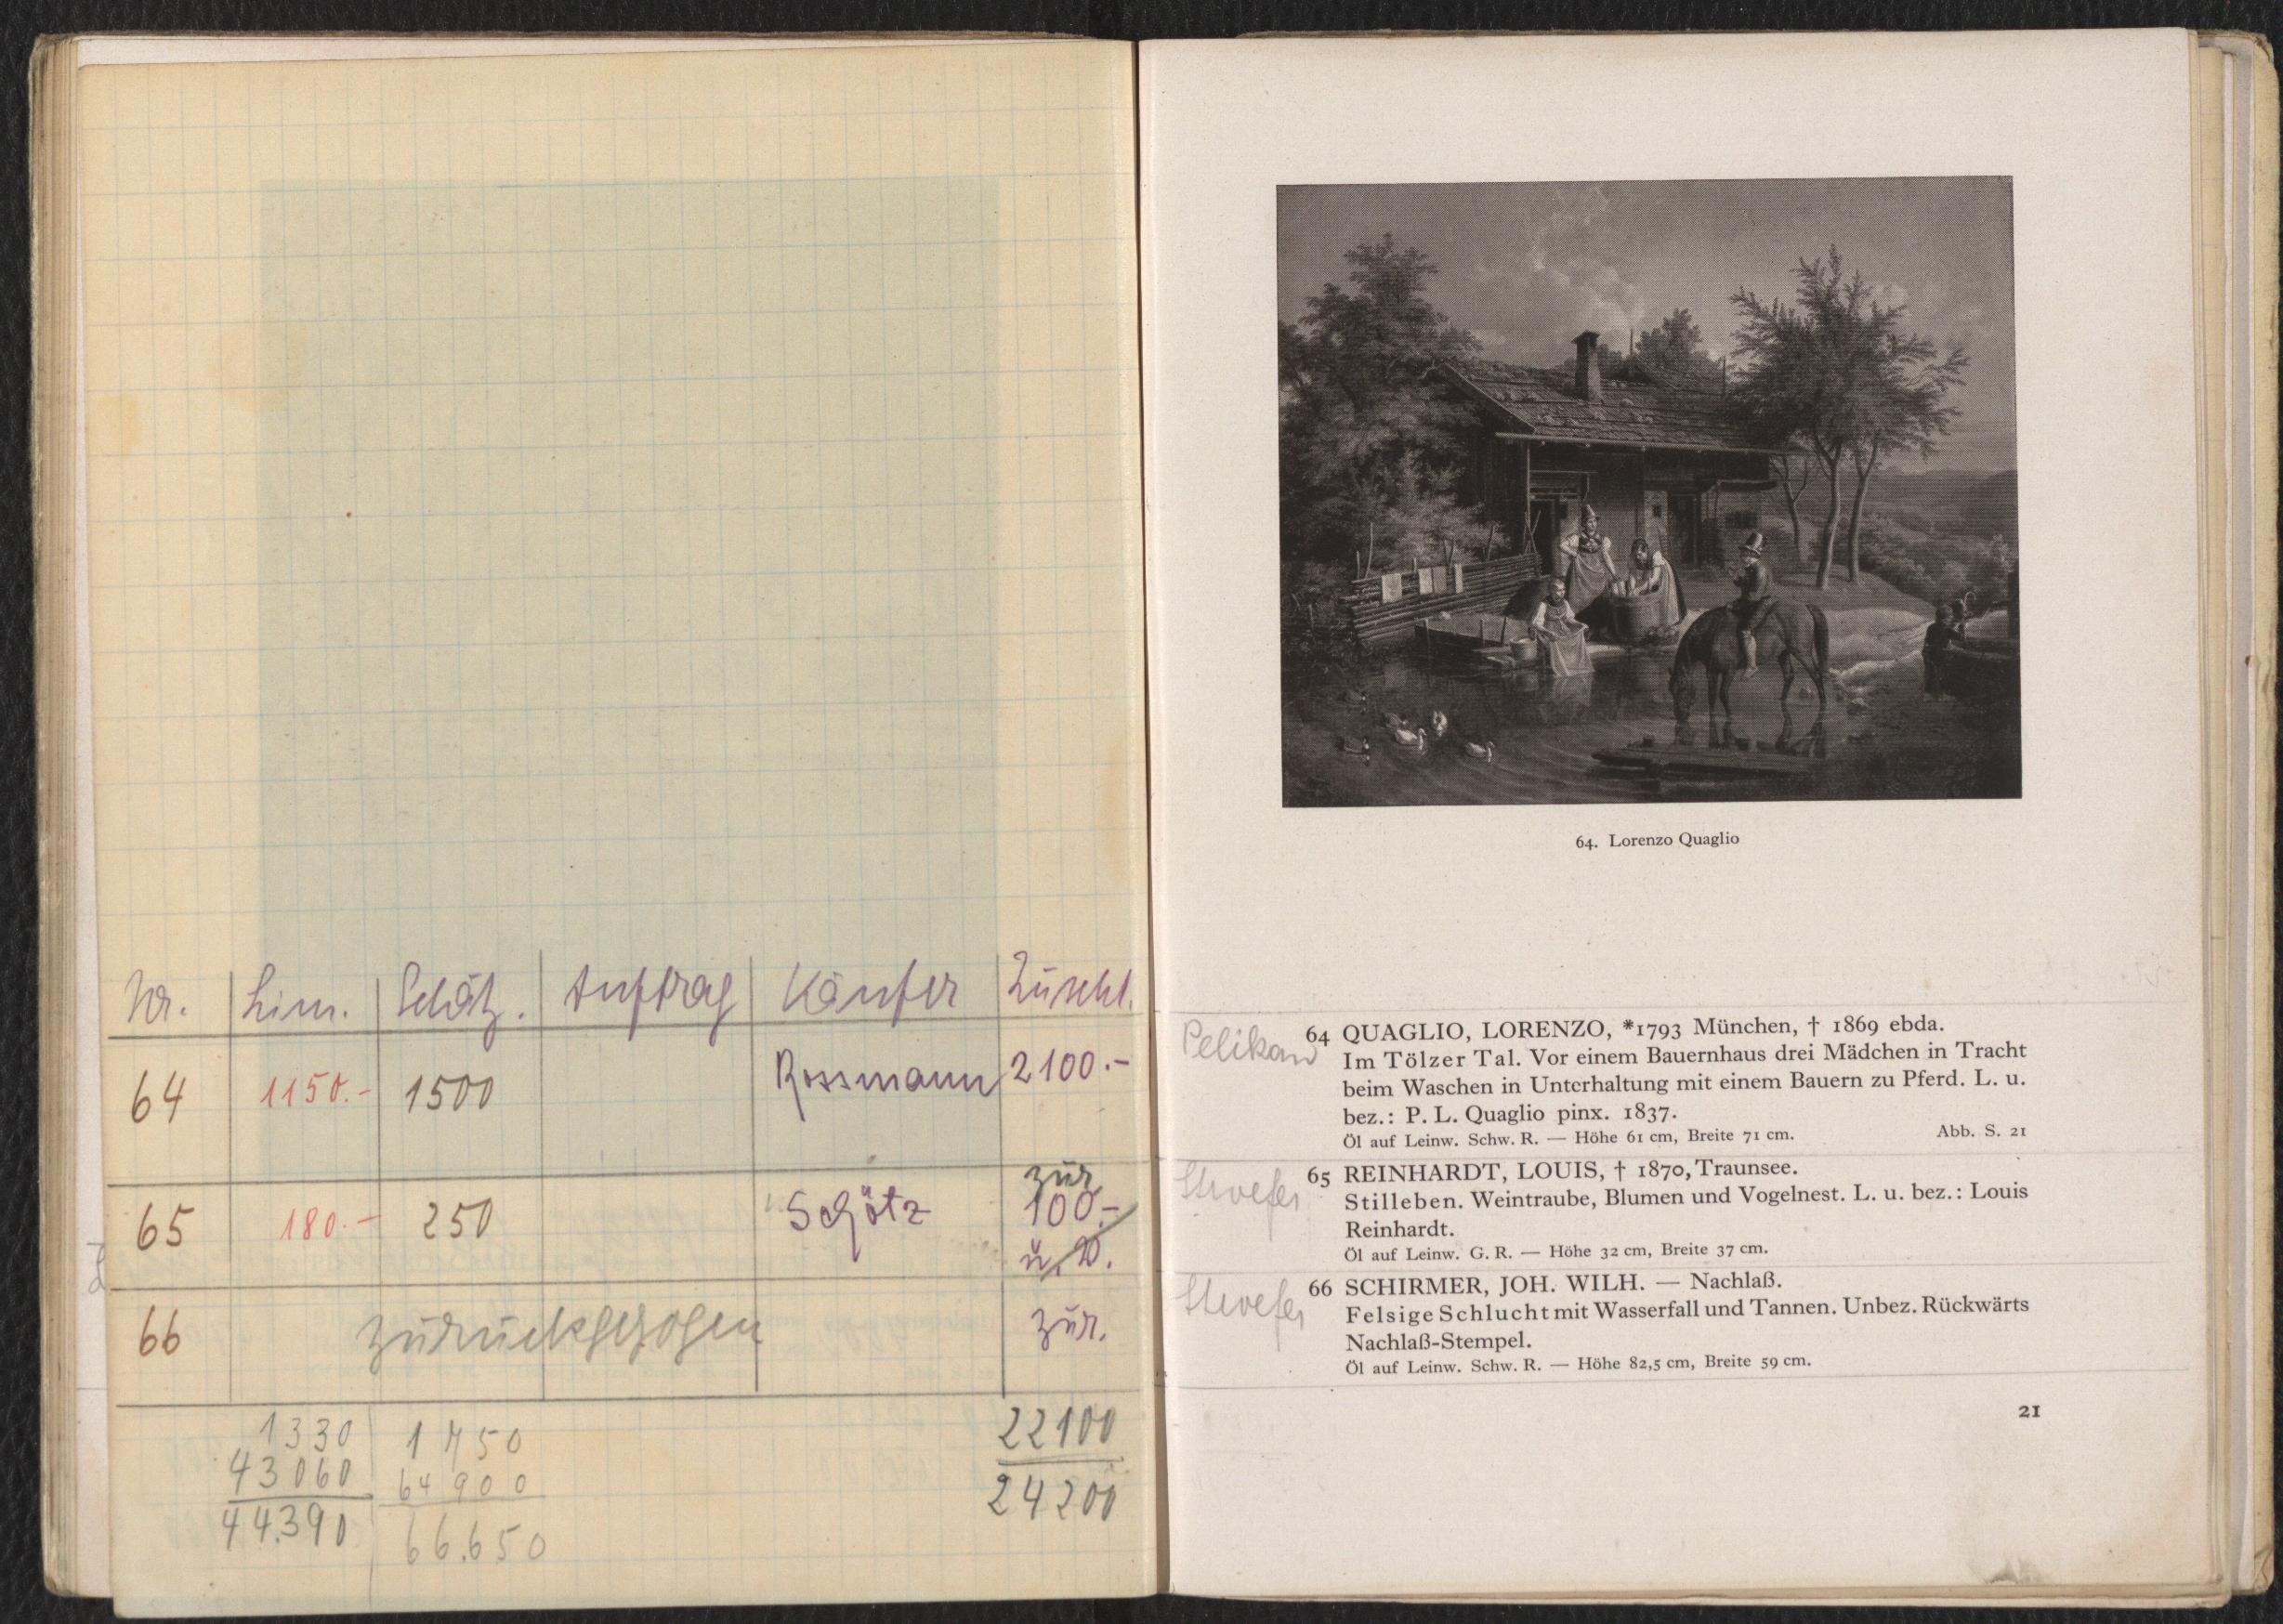 Nr. Lim. Schätz. Auftrag Käufer Zuschl.
64 1150.- 1500 Rossmann 2100.-
zur
65 180.- 250 Schötz 100.-
u. D.
66 zurückgezogen zur.
1330 1750 22100
43060 64900 24200
44.390 66.650
64. Lorenzo Quaglio
Pelikan 64 QUAGLIO, LORENZO, *1793 München, † 1869 ebda.
Im Tölzer Tal. Vor einem Bauernhaus drei Mädchen in Tracht
beim Waschen in Unterhaltung mit einem Bauern zu Pferd. L. u.
bez.: P. L. Quaglio pinx. 1837.
Öl auf Leinw. Schw. R. — Höhe 61 cm, Breite 71 cm. Abb. S. 21
65 REINHARDT, LOUIS, † 1870, Traunsee.
Stilleben. Weintraube, Blumen und Vogelnest. L. u. bez.: Louis
Reinhardt.
Öl auf Leinw. G. R. — Höhe 32 cm, Breite 37 cm.
66 SCHIRMER, JOH. WILH. — Nachlaß.
Felsige Schlucht mit Wasserfall und Tannen. Unbez. Rückwärts
Nachlaß-Stempel.
Öl auf Leinw. Schw. R. — Höhe 82,5 cm, Breite 59 cm.
21